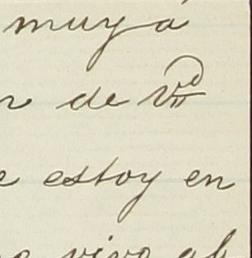 muy á
de Vd
estoy en
vivo